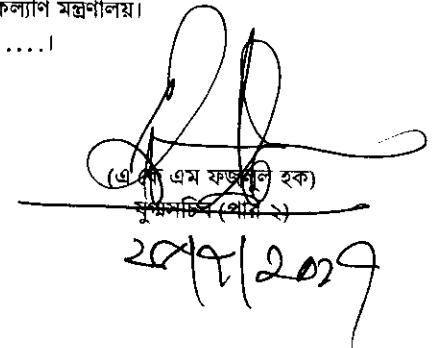 কল্যাণ মন্ত্রণালয়।
....।
(এ কে এম ফজলুল হক)
যুগ্মসচিব (পার ২)